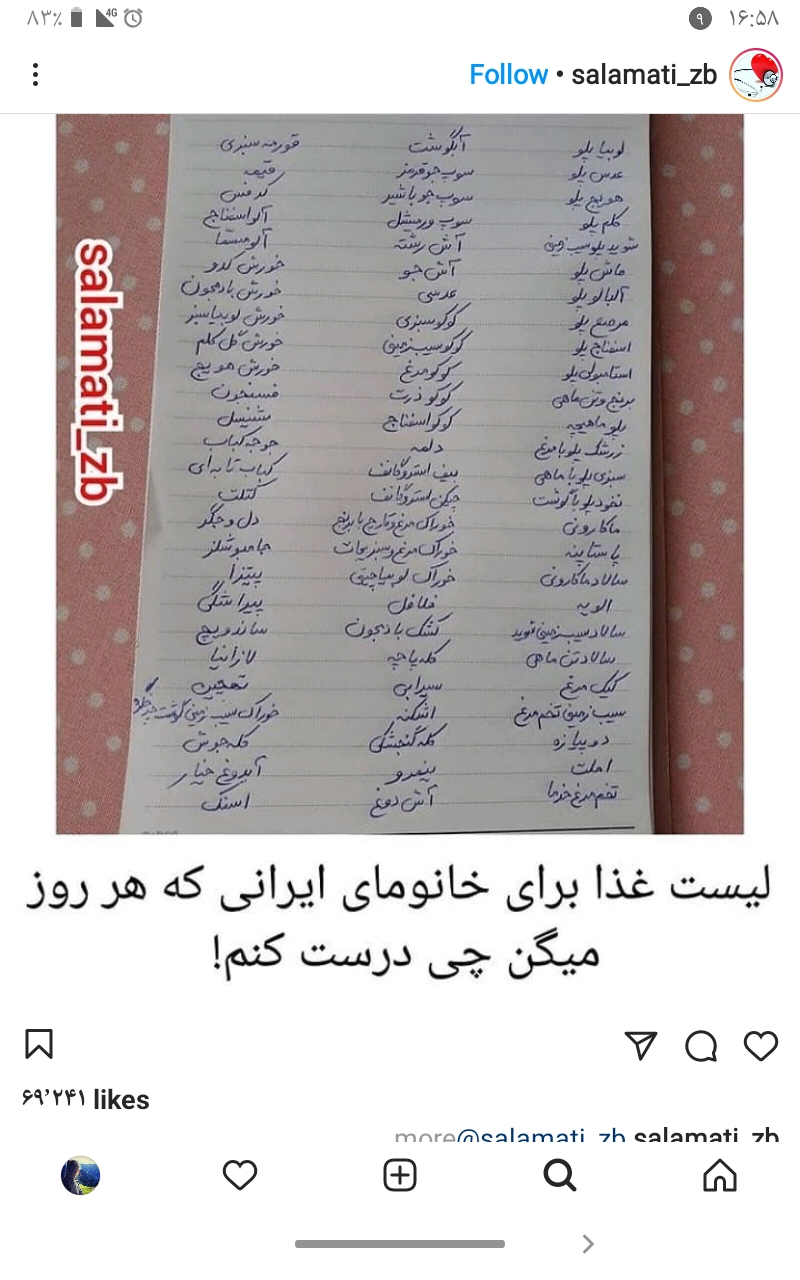 ۱۶:۵۸ ۹ 4G ۸۳٪
salamati_zb • Follow
لوبیا پلو آبگوشت قورمه سبزی
عدس پلو سوپ جو قرمز قیمه
هویج پلو سوپ جو با شیر کرفس
کلم پلو سوپ ورمیشل آلو اسفناج
شوید پلو سیب زمینی آش رشته آلو مسما
ماش پلو آش جو خورش کدو
آلبالو پلو عدسی خورش بادمجون
مرصع پلو کوکو سبزی خورش لوبیا سبز
اسفناج پلو کوکو سیب زمینی خورش گل کلم
استامبولی پلو کوکو مرغ خورش هویج
برنج و تن ماهی کوکو ذرت فسنجون
پلو ماهیچه کوکو اسفناج شنیسل
زرشک پلو با مرغ دلمه جوجه کباب
سبزی پلو با ماهی بیف استروگانف کباب تابه ای
نخود پلو با گوشت چیکن استروگانف کتلت
ماکارونی خوراک مرغ و قارچ با برنج دل و جگر
پاستا پنه خوراک مرغ و سبزیجات هامبوشلز
سالاد ماکارونی خوراک لوبیا چیتی پیتزا
الویه فلافل پیراشکی
سالاد سیب زمینی تنوید کشک بادمجون ساندویچ
سالاد تن ماهی کله پاچه لازانیا
کیک مرغ سیرابی تهچین
سیب زمینی تخم مرغ اشکنه خوراک سیب زمینی گوشت
دو پیازه کله گنجشکی کله جوش
املت نیمرو آبدوغ خیار
تخم مرغ خرما آش دوغ اسنک
salamati_zb
لیست غذا برای خانومای ایرانی که هر روز
میگن چی درست کنم!
۶۹٬۲۴۱ likes
salamati_zb @salamati_zb more